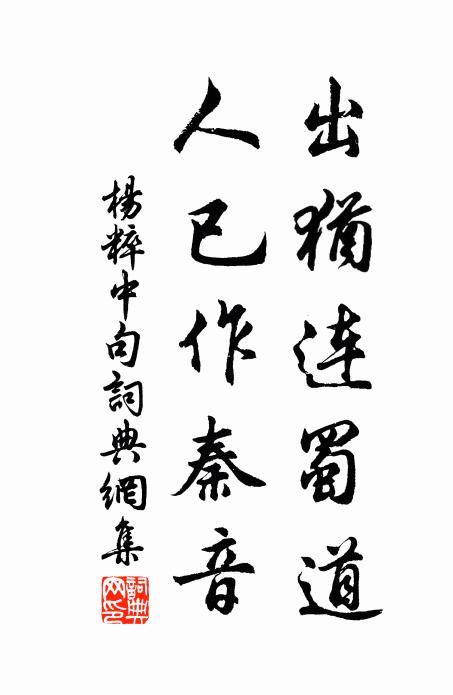 出猶連蜀道
人已作秦音
楊粹中句詞典網集
詞典網印